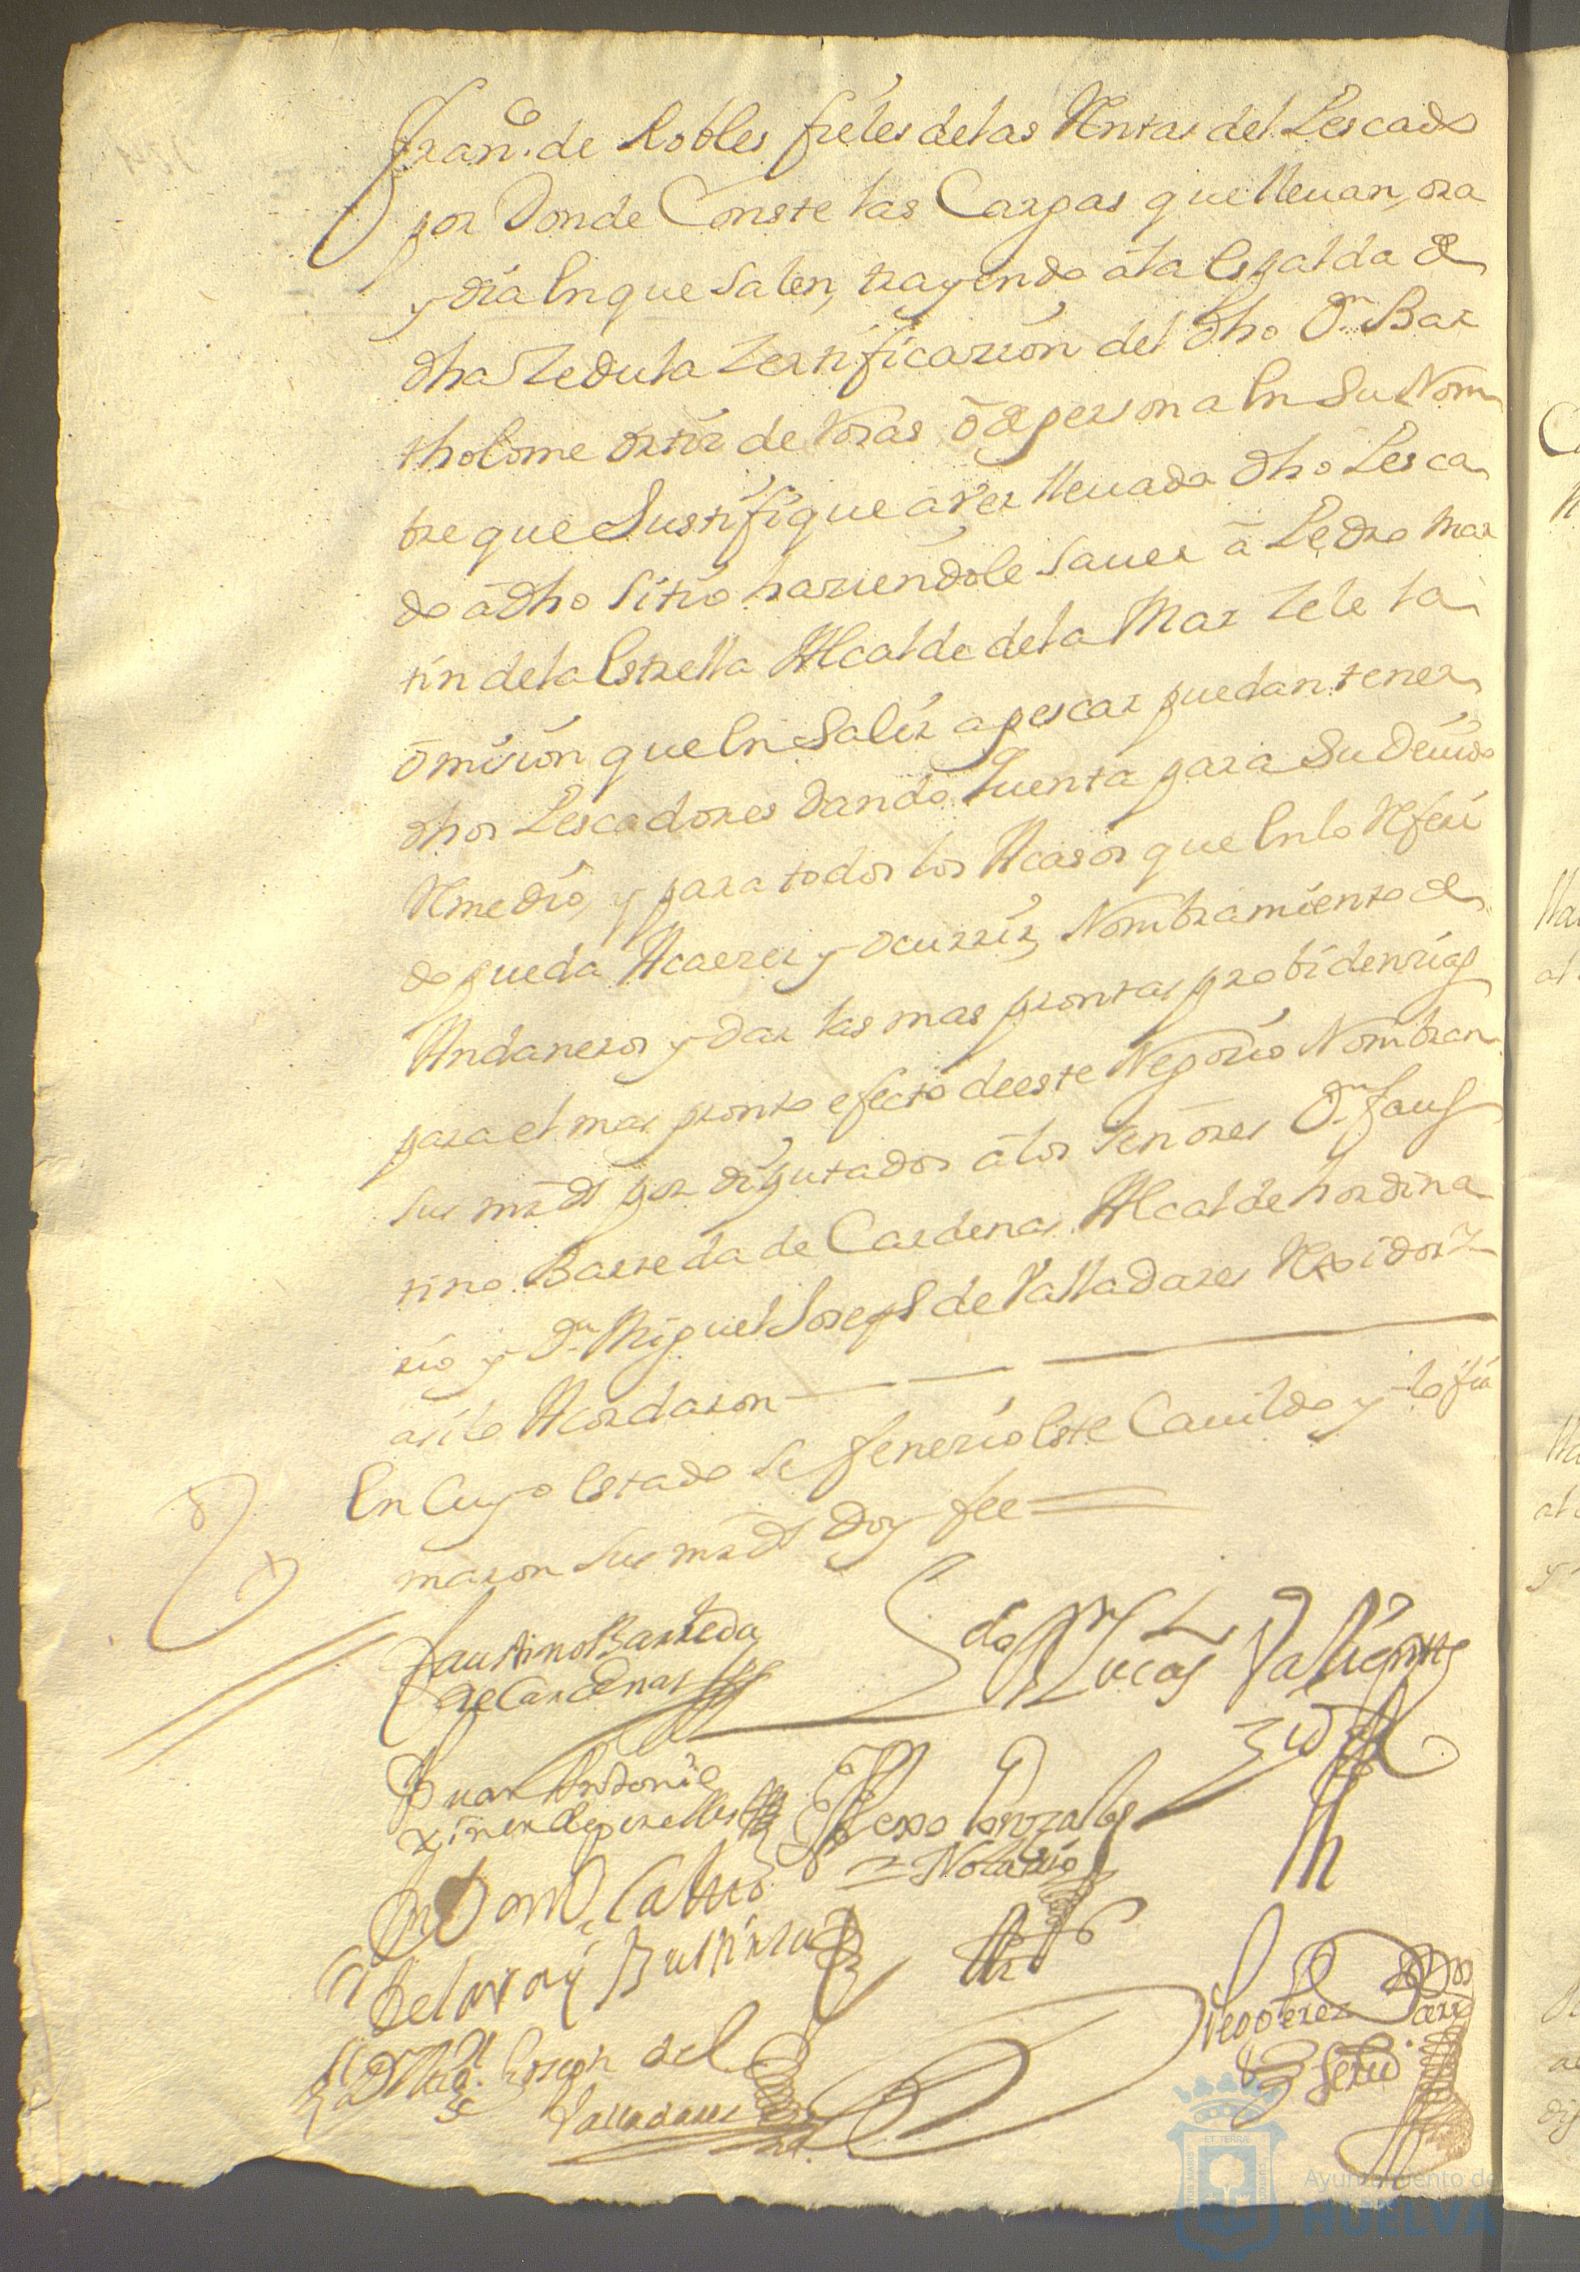 Fran.co de Robles fieles de las Rentas del Pescado
por Donde Conste las Cargas que lleuan, ora
y dia En que salen, trayendo á la Espalda de
dha Zedula Zertificazion del dho Dn Bar
tholome Ortiz de Noras ó de persona En Su Nom
bre que Justifique aver lleuado dho Pesca
do á dho sitio haziendole sauer á Pedro Mar
tin de la Estrella Alcalde de la Mar Zele la
omision que En Salir a pescar puedan tener
dhos Pescadores dando quenta para Su Deuido
Remedio, y para todos los Acasos que En lo Referi
do pueda Acaezer y ocurrir, Nombramiento de
Andaneros y dar las mas prontas probidenzias
para el mas pronto efecto de este Negozio Nombran
sus mrds por diputados á los señores Dn Faus
tino Barreda de Cardenas Alcalde hordina
rio y Dn Miguel Joseph de Valladares Rexidor
asi lo Acordaron
En Cuyo Estado se fenezio Este Cauildo y lo fir
maron sus mrds doy fee
Faustino Barreda
de Cardenas
Ldo Dn Lucas Valiente
Juan Antonio
Alexo Gonzales
Notario
Dn Miguel Joseph del
Valladares
Diego Perez
Ayuntamiento de
HUELVA